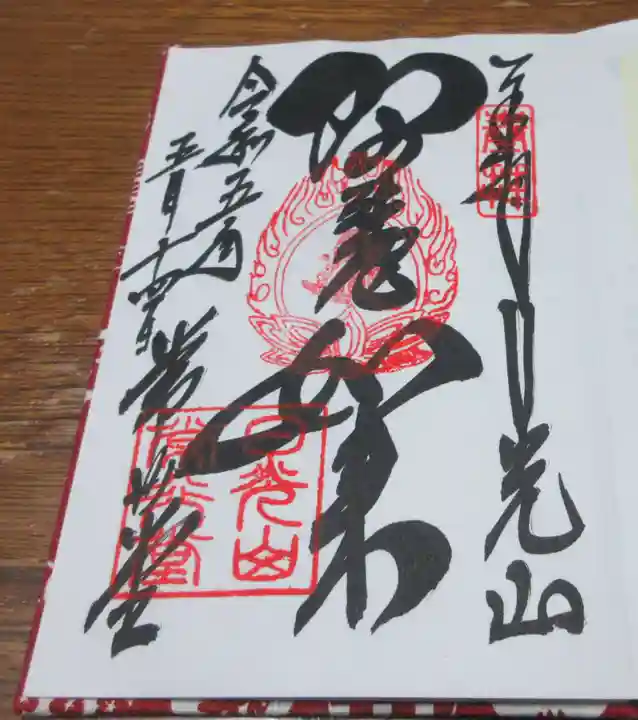 奉拝 日光山
阿弥陀如来
令和五年
五月十四日
常行堂
日光山
常行堂